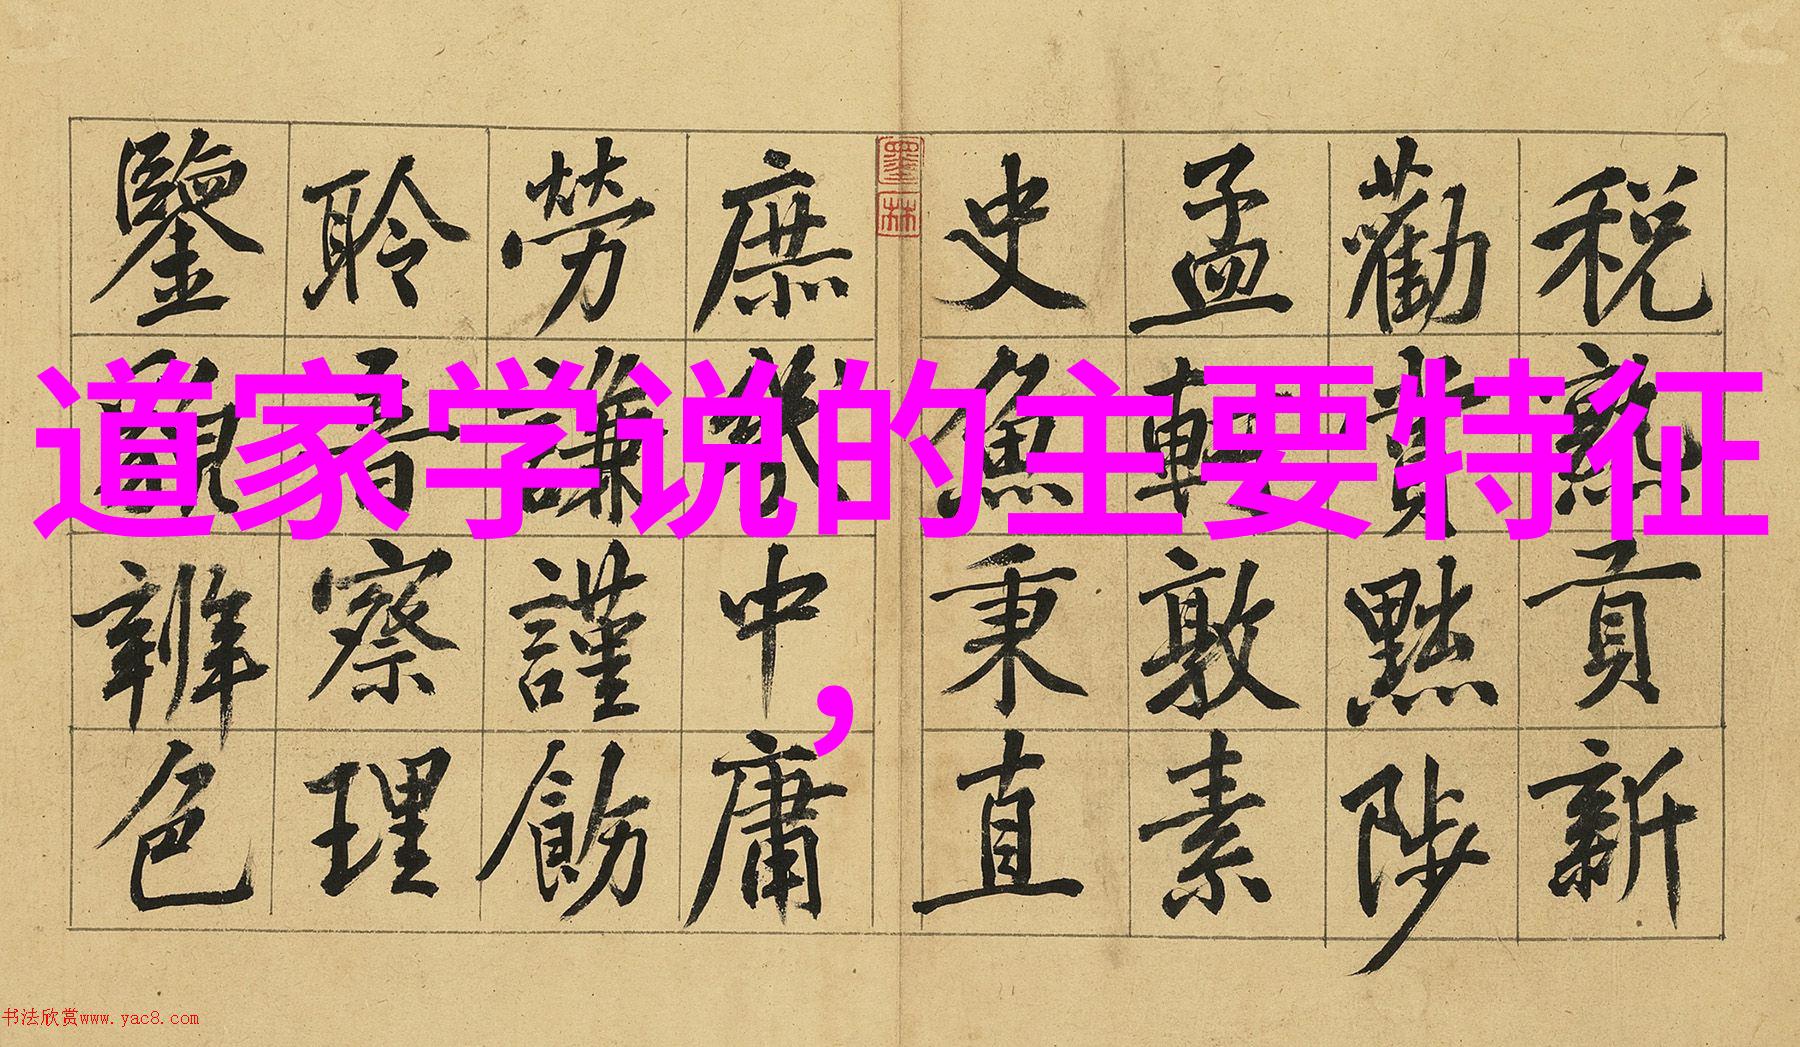 道家学说的主要特征
，
税熟貢新
勸賞黜陟
孟軻敦素
史魚秉直
墨林
庶幾中庸
勞謙謹飭
聆音察理
鑒貌辨色
书法欣赏www.yac8.com